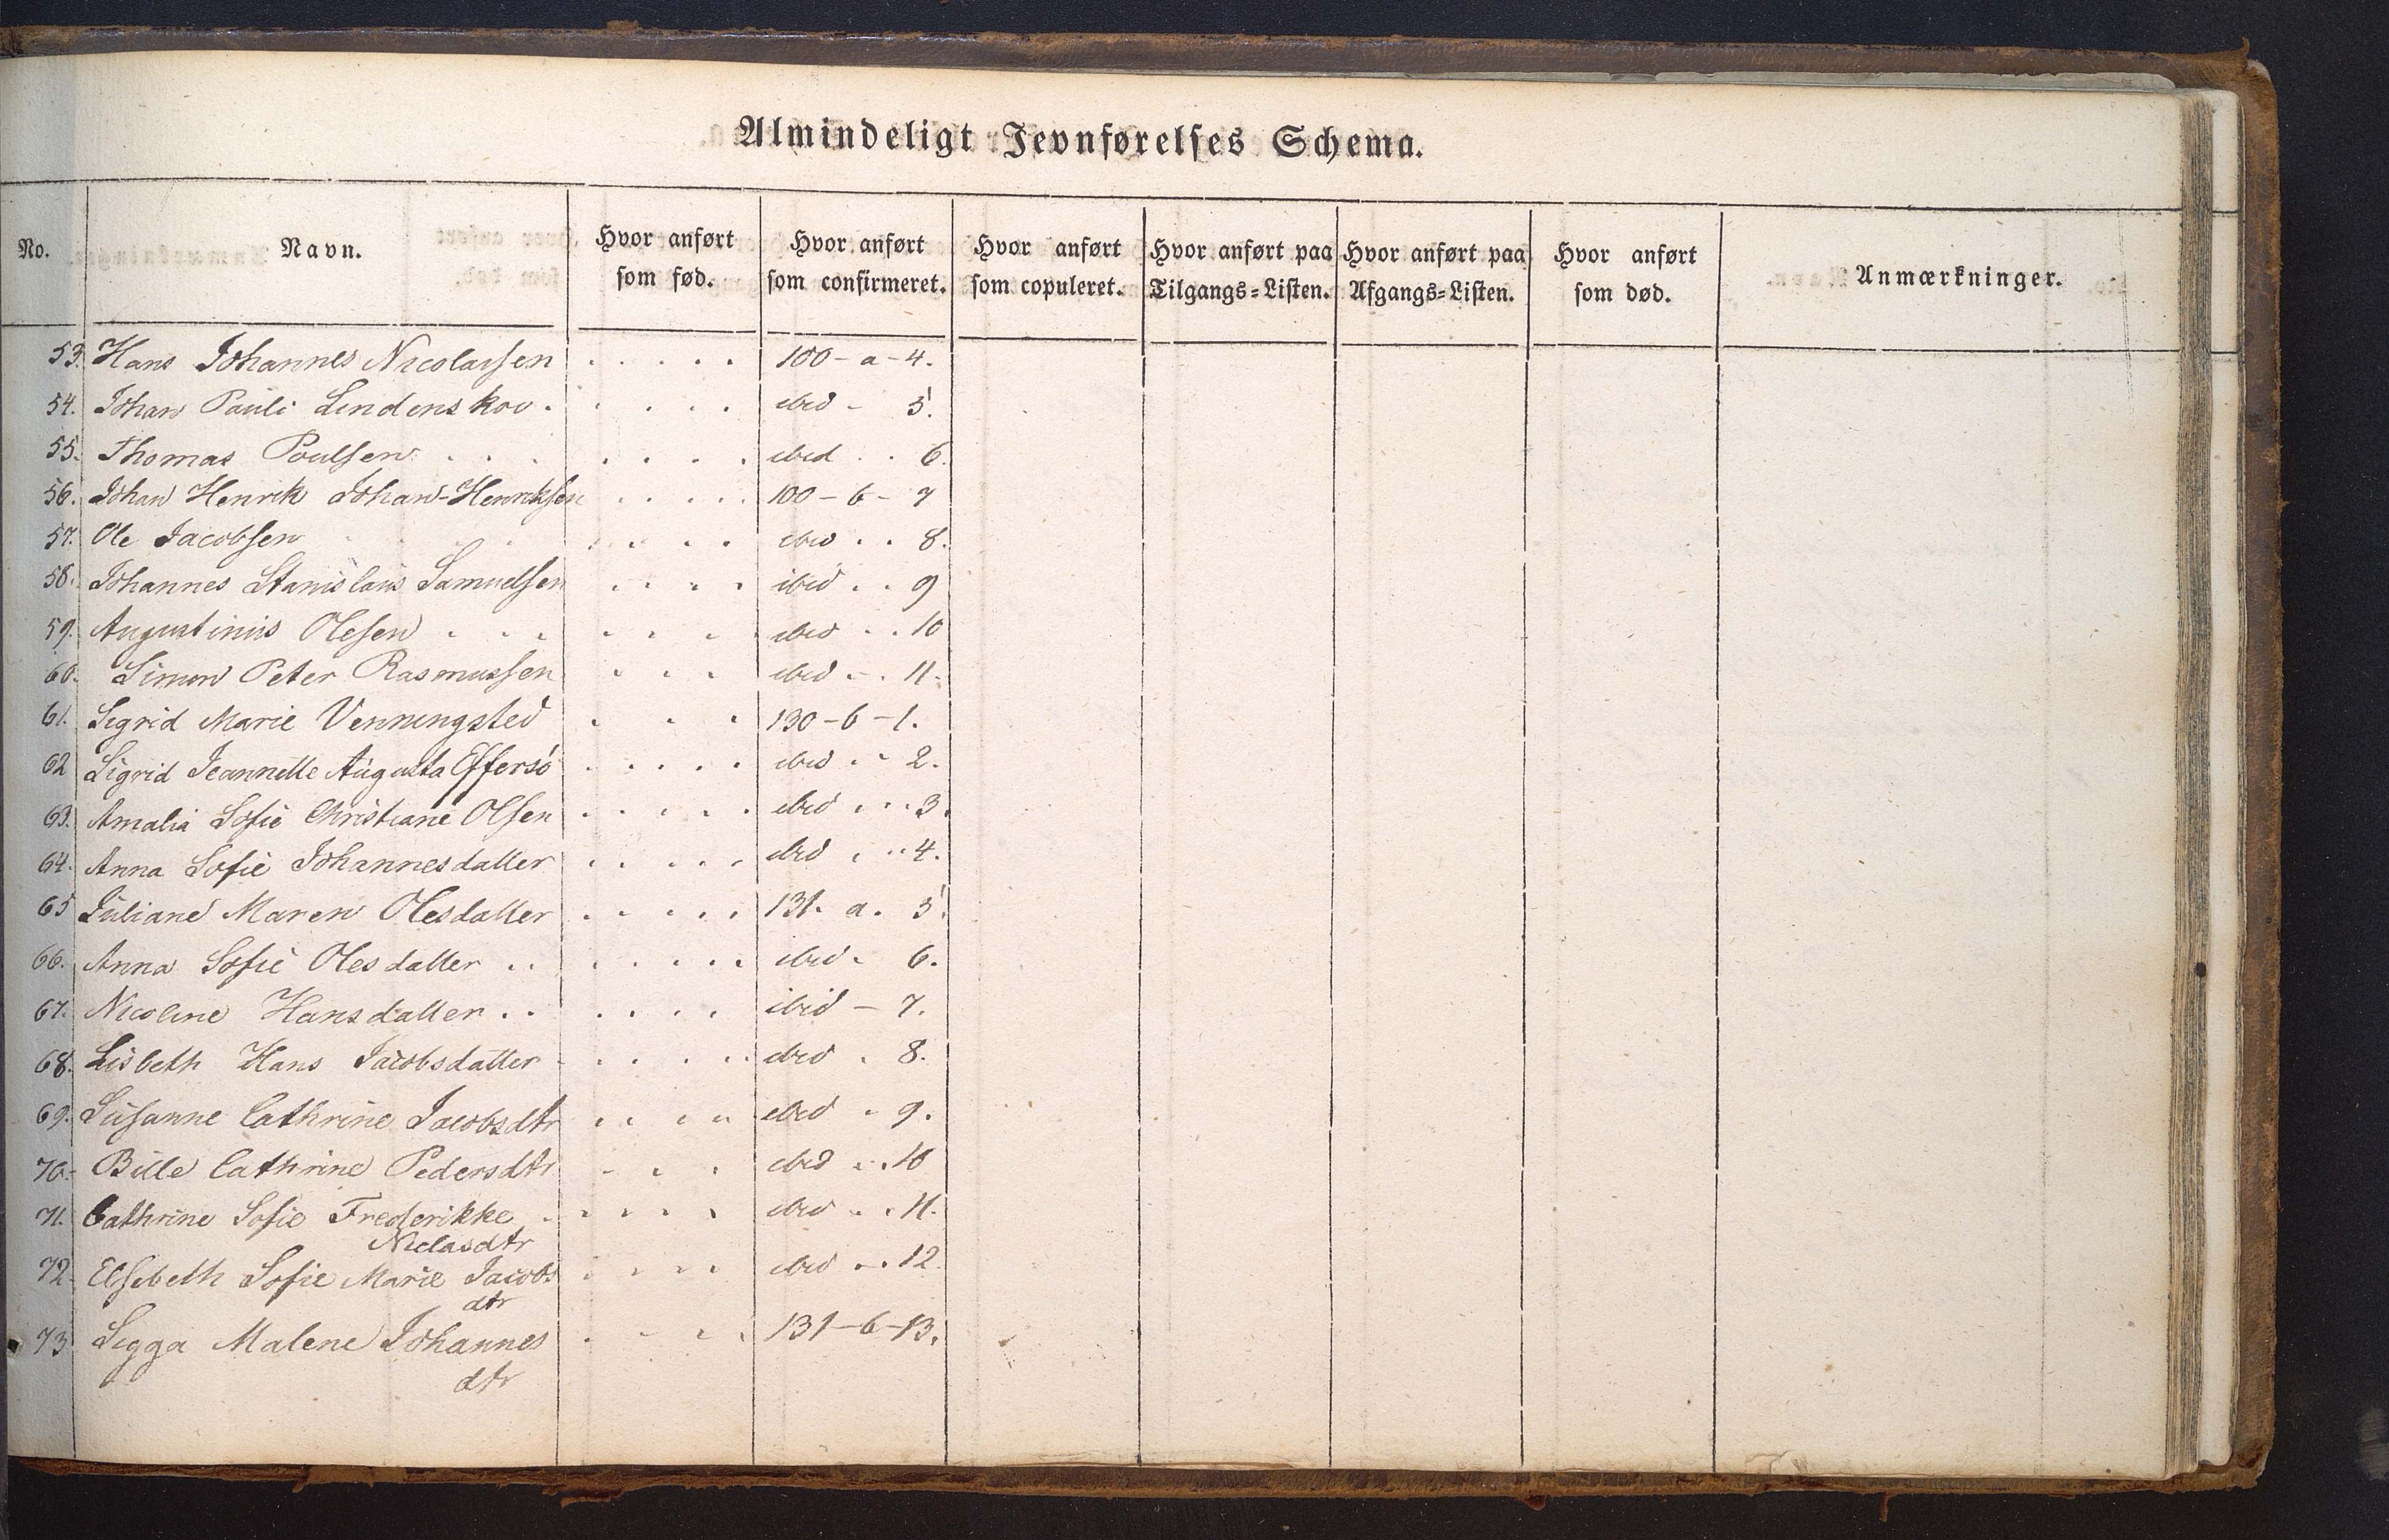 Almindeligt Jevnførelses Schema.
No. Navn. Hvor anført som fød. Hvor anført som confirmeret. Hvor anført som copuleret. Hvor anført paa Tilgangs=Listen. Hvor anført paa Afgangs=Listen. Hvor anført som død. Anmærkninger.
53. Hans Johannes Nicolaisen . . . . . 100 - a - 4.
54. Johan Pauli Lindenskov . . . . . ibid - 5.
55. Thomas Poulsen . . . . . . . ibid . . 6.
56. Johan Henrik Johan-Henriksen . . . . 100 - b - 7
57. Ole Jacobsen . . . . ibid . . 8.
58. Johannes Stanislaus Samuelsen . . . . ibid . . 9
59. Augustinus Olesen . . . . . . . ibid . . 10
60. Simon Peter Rasmussen . . . ibid . . 11.
61. Sigrid Marie Venningsted . . . 130 - b - 1.
62 Sigrid Jeannette Augusta Effersö . . . . . ibid . . 2.
63. Amalia Sofie Christiane Olsen . . . . . ibid . . . 3.
64. Anna Sofie Johannesdatter . . . . . ibid . . . 4.
65 Juliane Maren Olesdatter . . . . . 131. a. 5.
66. Anna Sofie Olesdatter . . . . . . . ibid . 6.
67. Nicoline Hansdatter . . . . . . ibid - 7.
68. Lisbeth Hans Jacobsdatter . . . . . ibid . 8.
69. Susanne Cathrine Jacobsdtr . . . . ibid . 9.
70. Bille Cathrine Pedersdtr . . . ibid . . 10
71. Cathrine Sofie Frederikke . . . . . ibid . . 11.
Niclasdtr
72. Elsebeth Sofie Marie Jacobs . . . . ibid . . 12.
dtr
73. Sigga Malene Johannes . . . . 131 - b - 13.
dtr